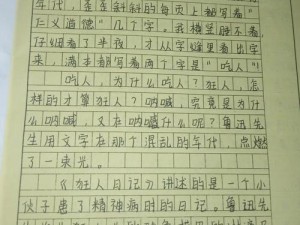 年代，歪歪斜斜的每页上都写着“
仁义道德”几个字。我横竖睡不着，
仔细看了半夜，才从字缝里看出字
来，满本都写着两个字是“吃人”！
吃人，为什么吃人？狂人，怎
样的才算狂人？呐喊，究竟是为什
么呐喊，又在呐喊什么呢？鲁迅先
生用文字在那个混乱的年代，点燃
了一束光。
《狂人日记》讲述的是一个小
伙子患了精神病时的日记。鲁迅先